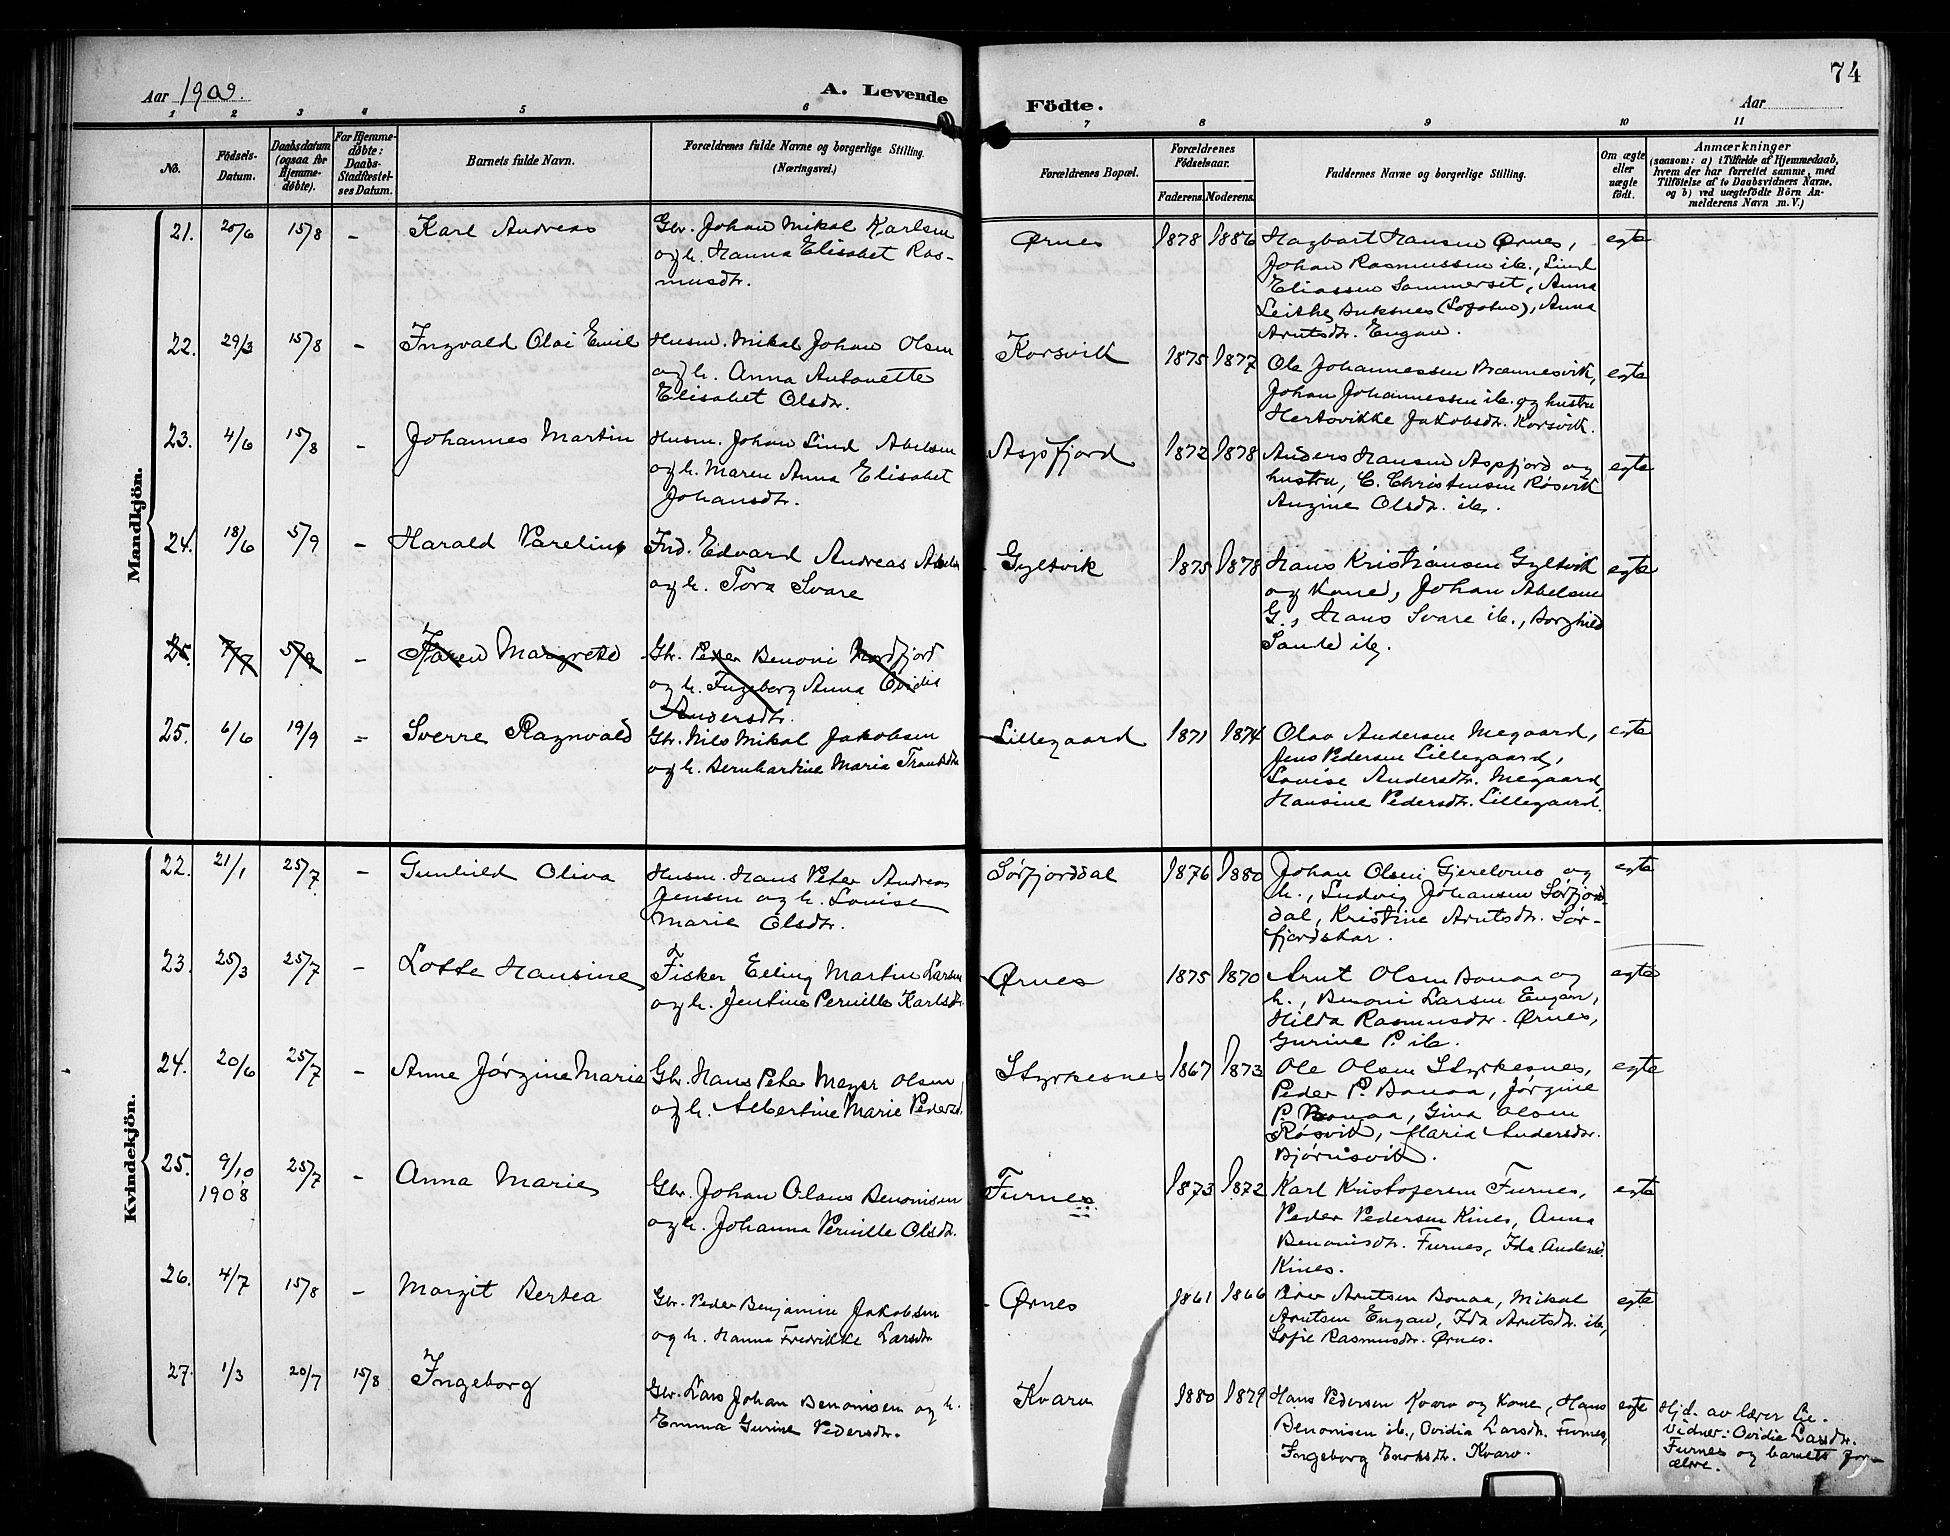 74
Aar 1909.
A. Levende Födte.
Aar
1 2 3 4 5 6 7 8 9 10 11
No.
Födsels-Datum.
Daabsdatum (ogsaa for Hjemme-døbte).
For Hjemme-døbte: Daabs-Stadfæstel-ses Datum.
Barnets fulde Navn.
Forældrenes fulde Navne og borgerlige Stilling.
(Næringsvei.)
Forældrenes Bopæl.
Forældrenes Födselsaar.
Faderens. Moderens.
Faddernes Navne og borgerlige Stilling.
Om ægte eller uægte födt.
Anmærkninger
(saasom: a) i Tilfælde af Hjemmedaab,
hvem der har forrettet samme, med
Tilföielse af to Daabsvidners Navne,
og b) ved uægtefödte Börn An-
melderens Navn m. V.)
Mandkjön.
21. 20/6 15/8 - Karl Andreas
Gbr. Johan Mikal Karlsen
og h. Hanna Elisabet Ras-
musdtr.
Ørnes 1878 1886
Hagbart Hansen Ørnes,
Johan Rasmussen ib., Lind
Eliassen Sommerset, Anna
(Lofoten), Anna
Arntsdtr. Engan.
egte
22. 29/3 15/8 - Ingvald Olai Emil
Husm. Mikal Johan Olsen
og h. Anna Antonette
Elisabet Olsdtr.
Korsvik 1875 1877
Ole Johannessen Brennesvik,
Johan Johannessen ib. og hustru
Hertovikke Jakobsdtr. Korsvik.
egte
23. 4/6 15/8 - Johannes Martin
Husm. Johan Lind Abelsen
og h. Maren Anna Elisabet
Johansdtr.
Aspfjord 1872 1878
Anders Hansen Aspfjord og
hustru, C. Christensen Røsvik
Anzine Olsdtr. ib.
egte
24. 18/6 5/9 - Harald Parelius
Ind. Edvard Andreas Abelsen
og h. Tora Svare
Gyltvik 1875 1878
Hans Kristiansen Gyltvik
og Kone, Johan Abelsen
G., Hans Svare ib., Borghild
Sande ib.
egte
25. 7/7 5/9 - Karen Margrete
Gbr. Peder Benoni Nordfjord
og h. Ingeborg Anna Ovidia
Andersdtr.
25. 6/6 19/9 = Sverre Ragnvald
Gbr. Nils Mikal Jakobsen
og h. Bernhardine Maria
Lillegaard 1871 1874
Olav Andersen Megaard,
Jens Pedersen Lillegaard,
Lovise Andersdtr. Megaard,
Hansine Pedersdtr. Lillegaard.
egte
Kvindekjön.
22. 21/1 25/7 - Gunhild Oliva
Husm. Hans Peter Andreas
Jensen og h. Lovise
Marie Olsdtr.
Sørfjorddal 1876 1880
Johan Olsen og
h., Ludvig Johansen Sørfjord-
dal, Kristine Arntsdtr. Sør-
fjordskar.
egte
23. 25/3 25/7 - Lotte Hansine
Fisker Elling Martin Larsen
og h. Jentine Pernille Karlsdtr.
Ørnes 1875 1870
Arnt Olsen Bonaa og
h., Benoni Larsen Engan,
Hilda Rasmusdtr. Ørnes,
Gurine P. ib.
egte
24. 20/6 25/7 - Anne Jørgine Marie
Gbr. Hans Peter Meyer Olsen
og h. Albertine Marie Pedersd.
Styrkesnes 1867 1873
Ole Olsen Styrkesnes,
Peder P. Bonaa, Jørgine
P. Bonaa, Gina Olsen
Røsvik, Maria Andersdtr.
Bjørnsvik.
egte
25. 9/10 1908 25/7 - Anna Marie
Gbr. Johan Olaus Benonisen
og h. Johanna Pernille Olsdtr.
Furnes 1873 1872
Karl Kristofersen Furnes,
Peder Pedersen Kines, Anna
Benonisdtr. Furnes, Ida Anders.
Kines.
egte
26. 4/7 15/8 - Margit Bertea
Gbr. Peder Benjamin Jakobsen
og h. Hanna Fredrikke Larsdtr.
Ørnes 1861 1866
Peder Arntsen Bonaa, Mikal
Arntsen Engan, Ida Arntsdtr. ib.,
Sofie Rasmusdtr. Ørnes.
egte
27. 1/3 20/7 15/8 Ingeborg
Gbr. Lars Johan Benonisen og h.
Emma Gurine Pedersdtr.
Kvarv 1880 1879
Hans Pedersen Kvarv og Kone, Hans
Benonisen ib., Ovidia Larsdtr. Furnes,
Ingeborg Enoksdtr. Kvarv.
egte
Hjd. av lærer Lie.
Vidner: Ovidia Larsdtr.
Furnes og barnets for-
ældre.